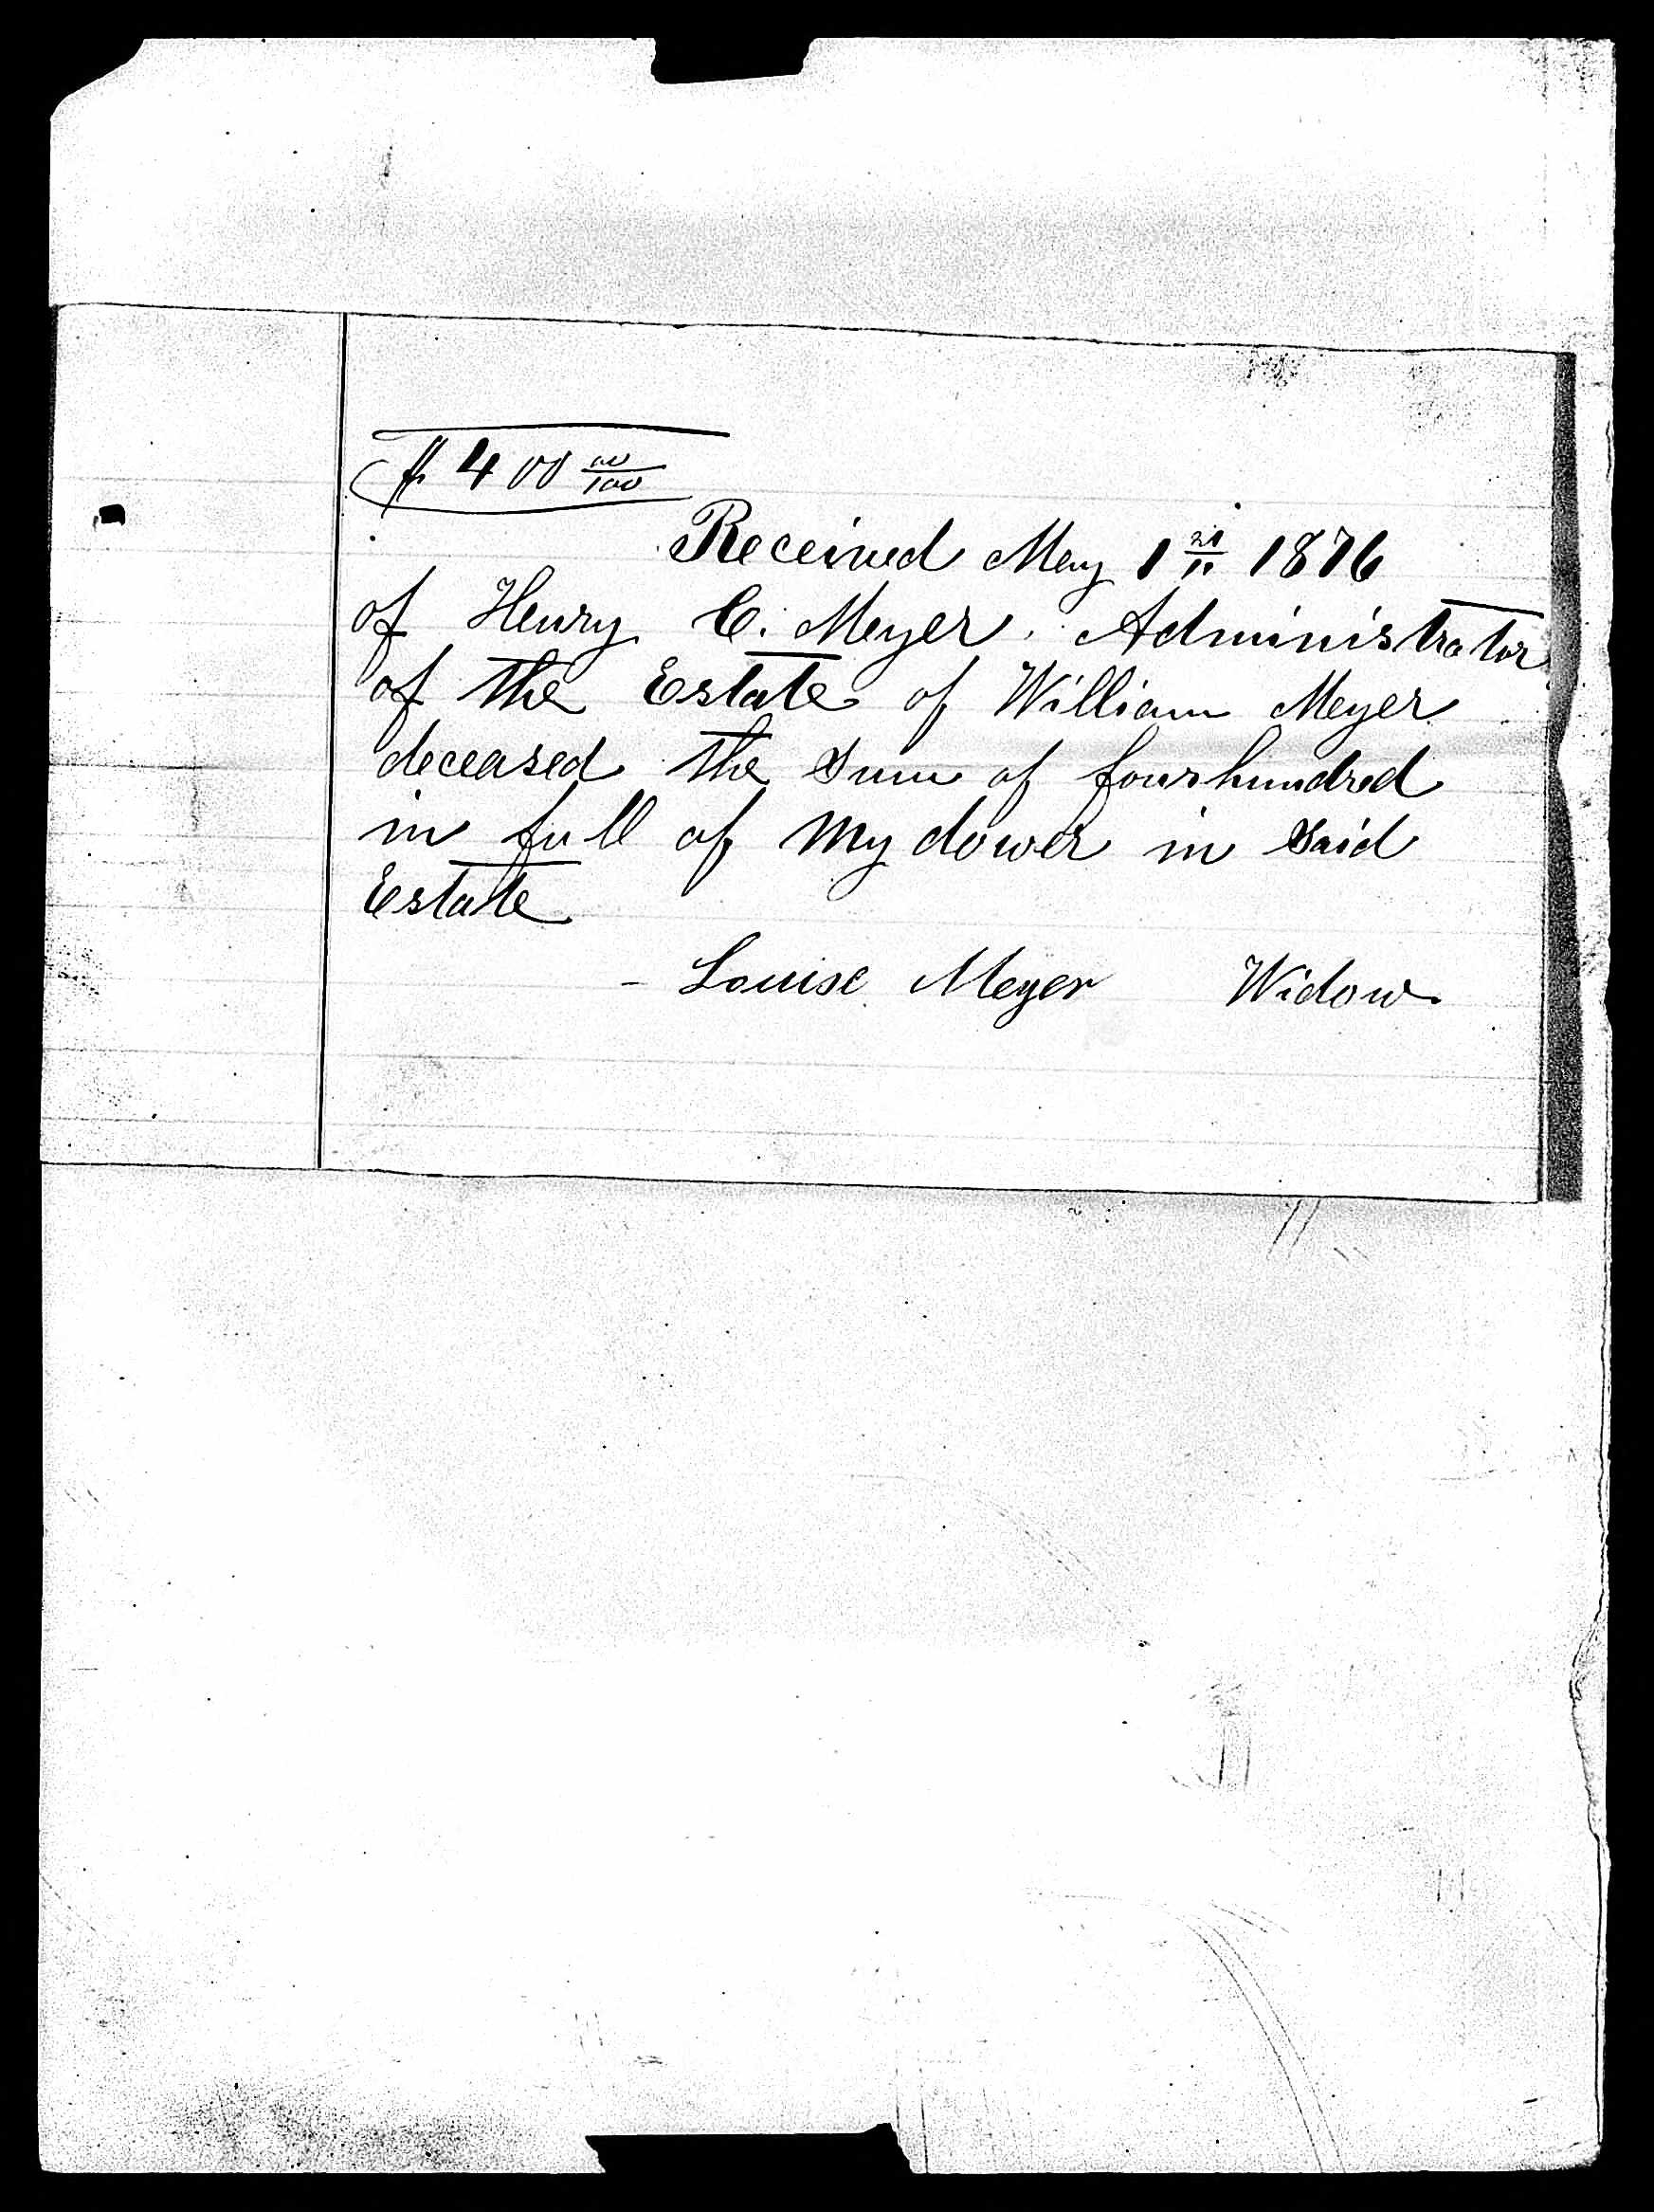 $ 400 00/100
Received May 1st 1876
of Henry C. Meyer. Administrator
of the Estate of William Meyer
deceased the Sum of fourhundred
in full of my dower in Said
Estate
- Louise Meyer Widow